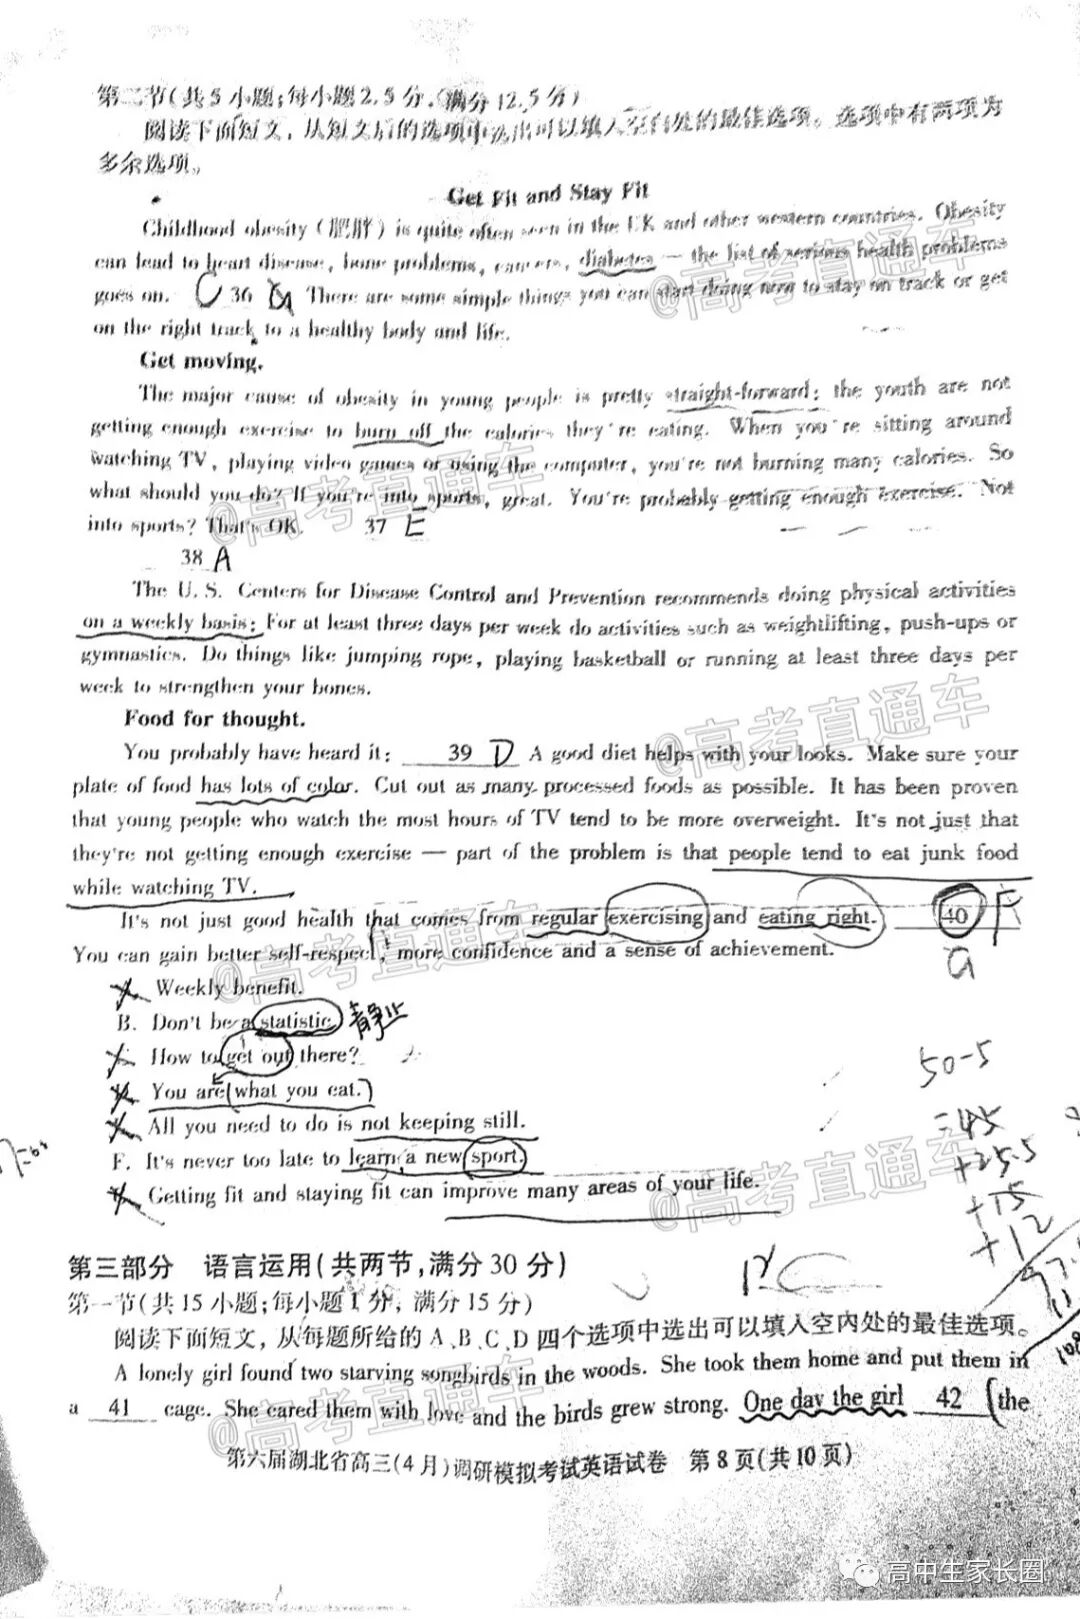 第二节(共5小题;每小题2.5分,满分12.5分)
阅读下面短文,从短文后的选项中选出可以填入空白处的最佳选项。选项中有两项为
多余选项。
Get Fit and Stay Fit
Childhood obesity (肥胖) is quite often seen in the UK and other western countries. Obesity
can lead to heart disease, bone problems, cancers, diabetes — the list of serious health problems
goes on. C 36 G There are some simple things you can start doing now to stay on track or get
on the right track to a healthy body and life.
Get moving.
The major cause of obesity in young people is pretty straight-forward: the youth are not
getting enough exercise to burn off the calories they're eating. When you're sitting around
watching TV, playing video games or using the computer, you're not burning many calories. So
what should you do? If you're into sports, great. You're probably getting enough exercise. Not
into sports? That's OK. 37 E
38 A
The U. S. Centers for Disease Control and Prevention recommends doing physical activities
on a weekly basis: For at least three days per week do activities such as weightlifting, push-ups or
gymnastics. Do things like jumping rope, playing basketball or running at least three days per
week to strengthen your bones.
Food for thought.
You probably have heard it: 39 D A good diet helps with your looks. Make sure your
plate of food has lots of color. Cut out as many processed foods as possible. It has been proven
that young people who watch the most hours of TV tend to be more overweight. It's not just that
they're not getting enough exercise — part of the problem is that people tend to eat junk food
while watching TV.
It's not just good health that comes from regular exercising and eating right. 40 F
You can gain better self-respect, more confidence and a sense of achievement.
G
A. Weekly benefit.
B. Don't be a statistic. 静止
C. How to get out there?
50-5
D. You are what you eat.
=45
E. All you need to do is not keeping still.
+25.5
F. It's never too late to learn a new sport.
+15
G. Getting fit and staying fit can improve many areas of your life.
+12
第三部分 语言运用(共两节,满分30分)
第一节(共15小题;每小题1分,满分15分)
阅读下面短文,从每题所给的A、B、C、D四个选项中选出可以填入空内处的最佳选项。
A lonely girl found two starving songbirds in the woods. She took them home and put them in
a 41 cage. She cared them with love and the birds grew strong. One day the girl 42 (the
第六届湖北省高三(4月)调研模拟考试英语试卷 第8页(共10页)
@高考直通车
@高考直通车
@高考直通车
@高考直通车
@高考直通车
@高考直通车
高中生家长圈